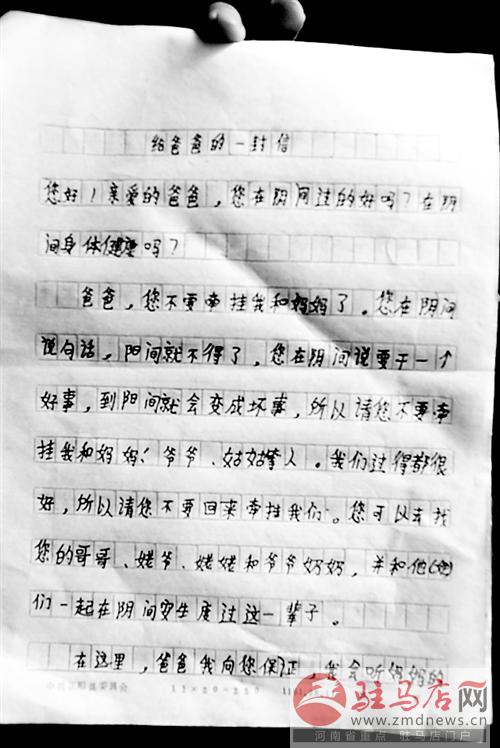 给爸爸的一封信
您好!亲爱的爸爸,您在阴间过的好吗?在阴
间身体健康吗?
爸爸,您不要牵挂我和妈妈了。您在阴间
说句话,阳间就不得了,您在阴间说要干一个
好事,到阳间就会变成坏事,所以请您不要牵
挂我和妈妈!爷爷、姑姑等人。我们过得都很
好,所以请您不要回来牵挂我们。您可以去找
您的哥哥、姥爷、姥姥和爷爷奶奶,并和他(她)
们一起在阴间安生度过这一辈子。
在这里,爸爸我向您保证,我会听妈妈的
11×20=220
驻马店网
www.zmdnews.cn
河南省重点 驻马店门户